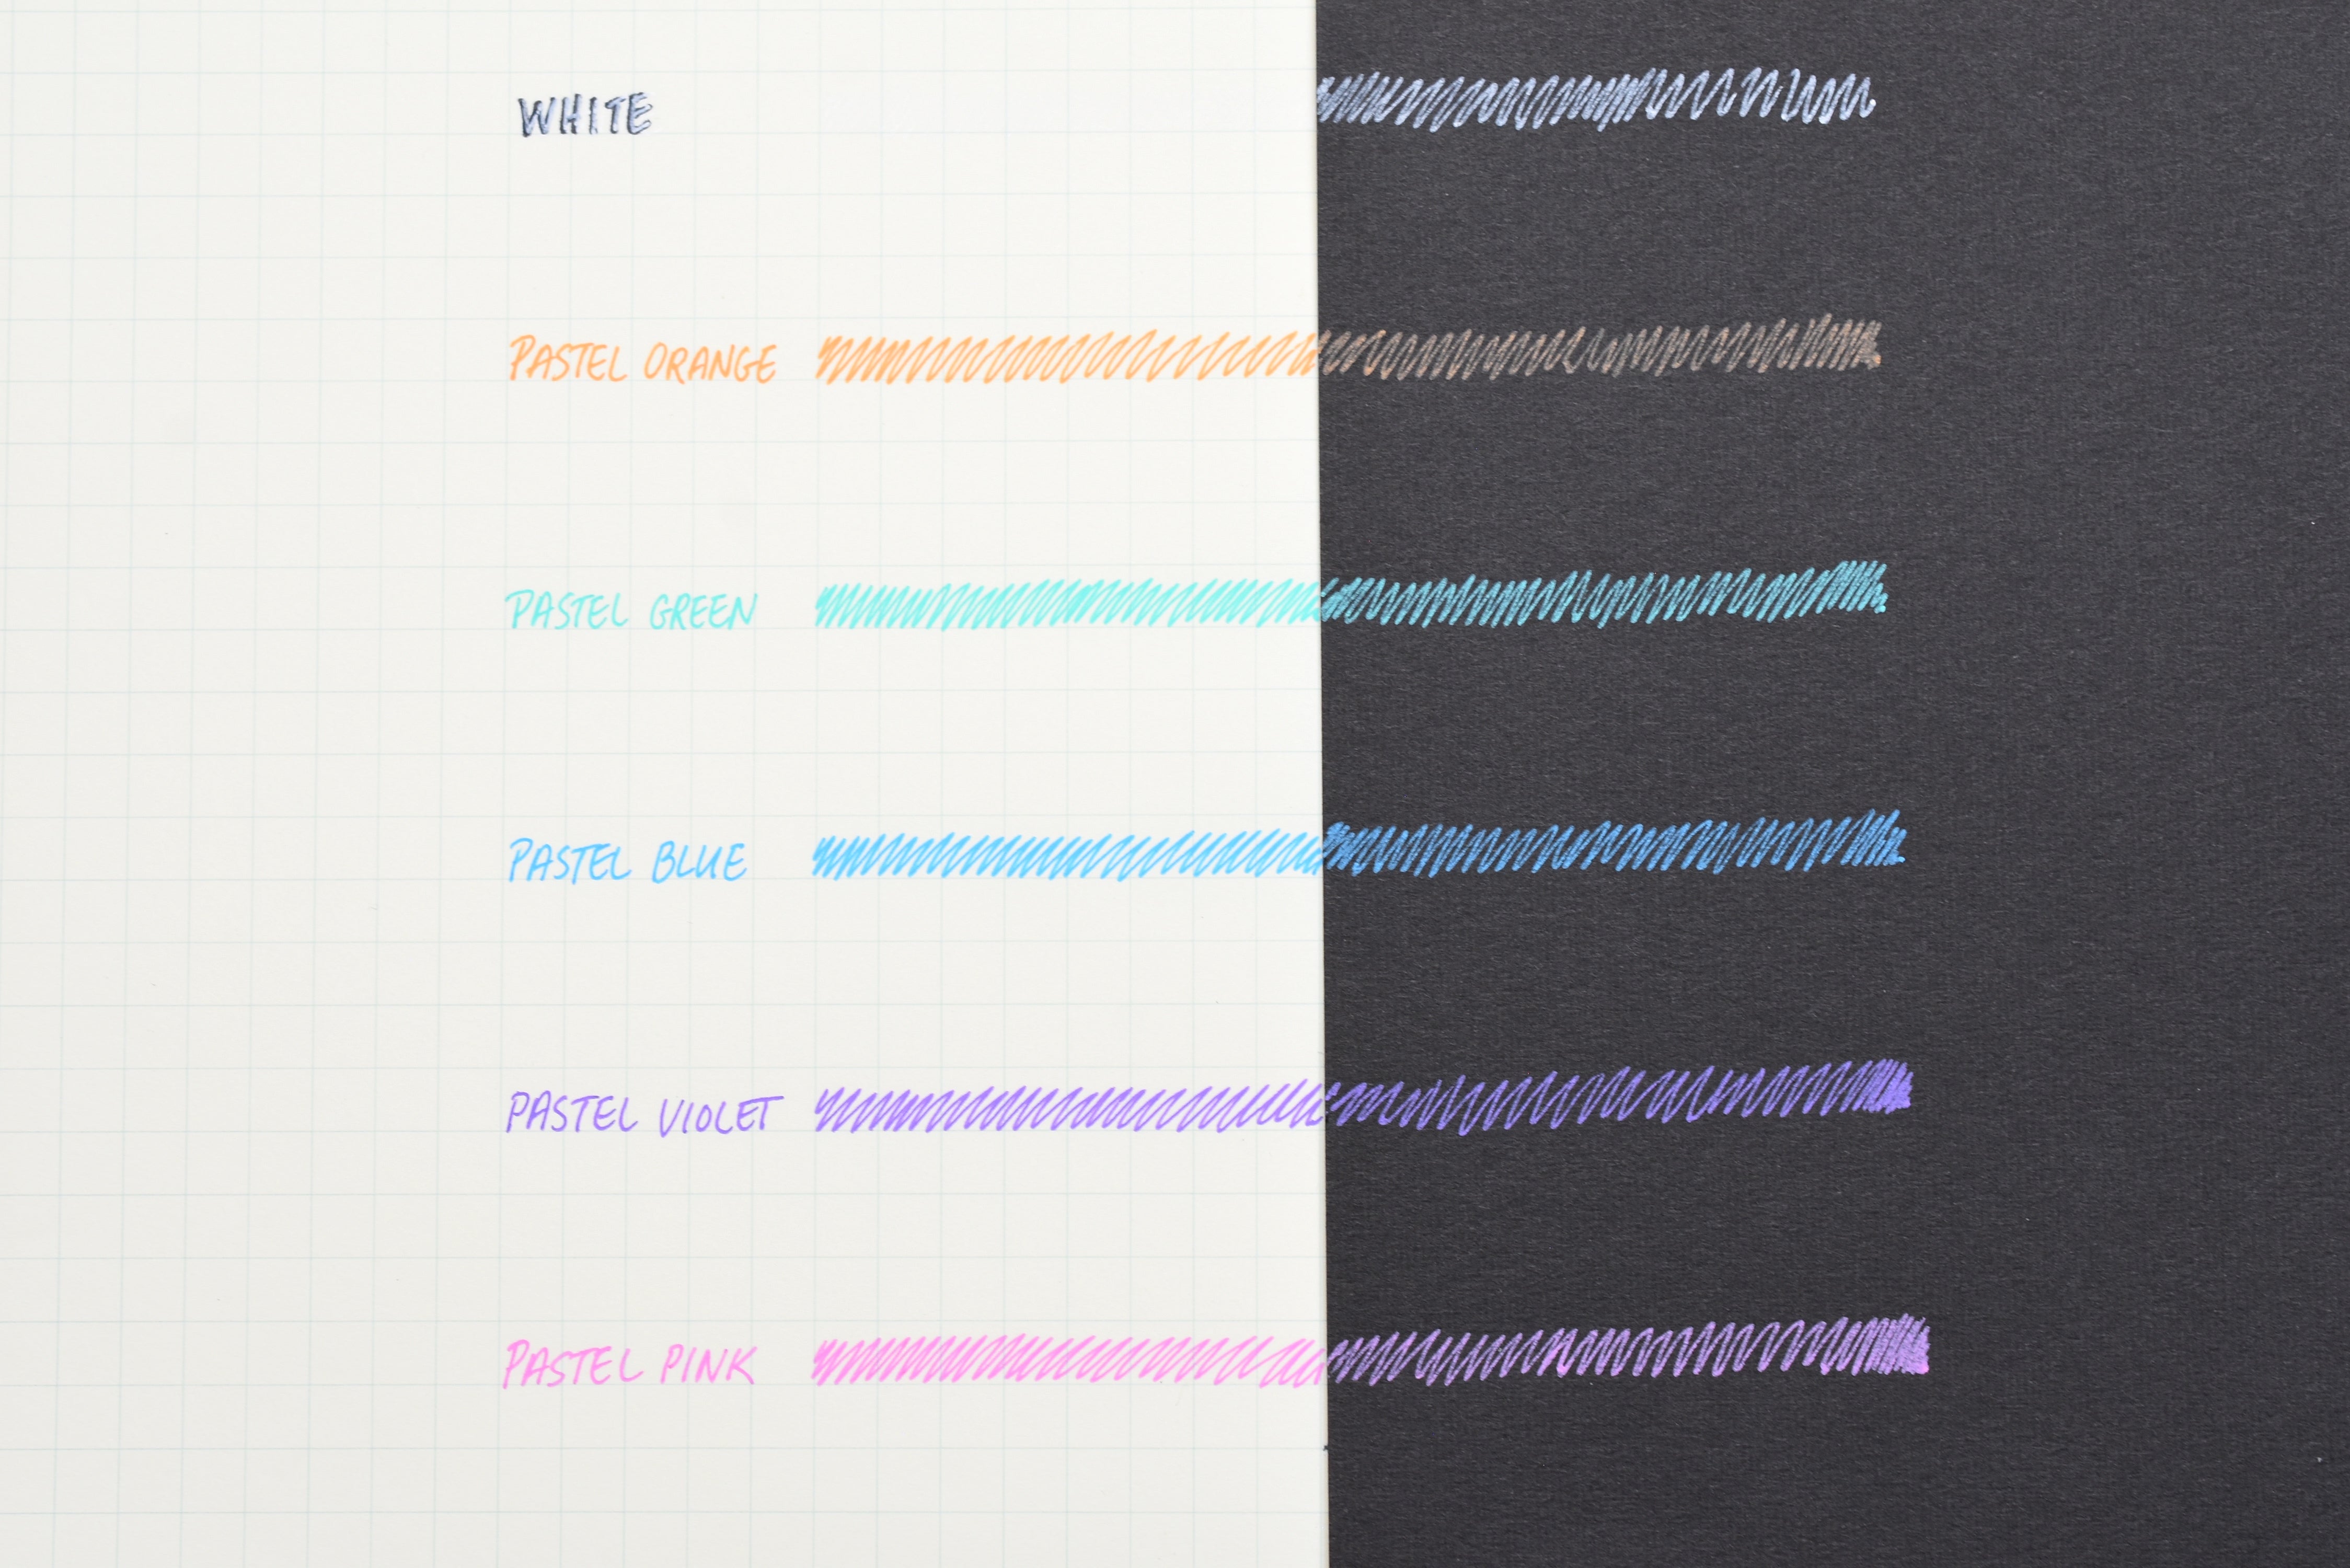 WHITE
PASTEL ORANGE
PASTEL GREEN
PASTEL BLUE
PASTEL VIOLET
PASTEL PINK